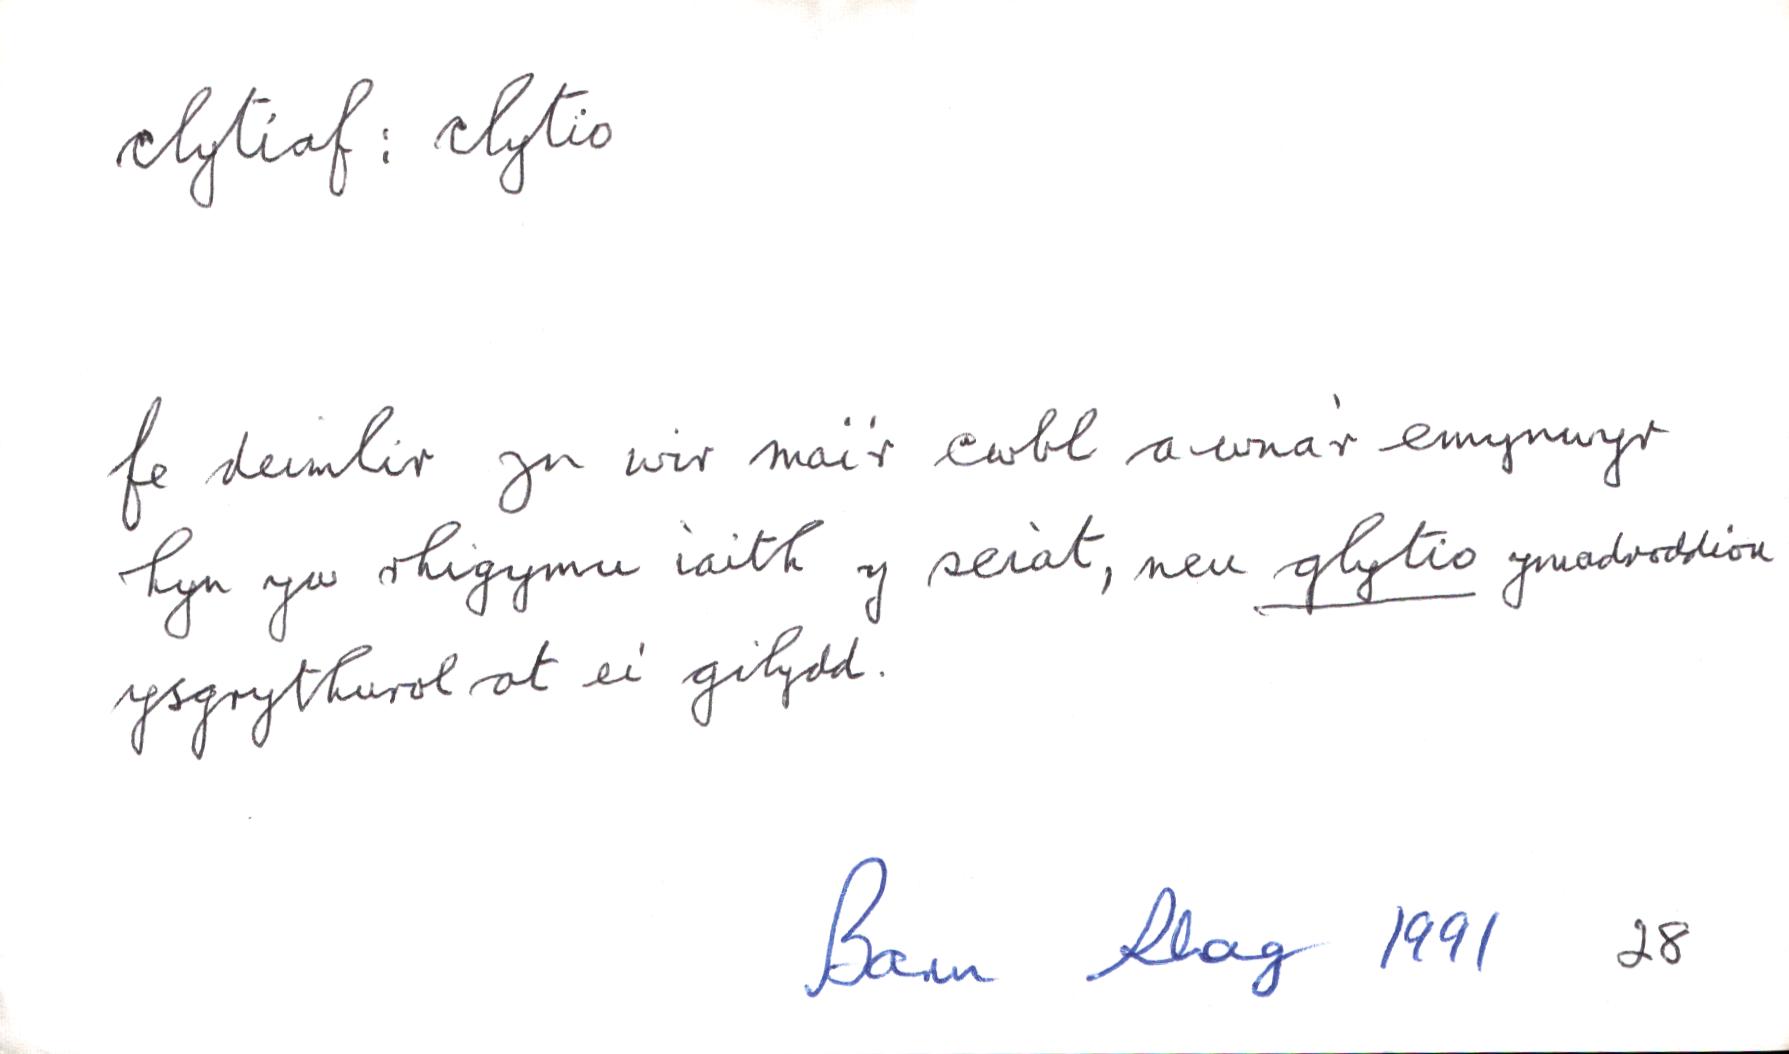 clytiaf: clytio
fe deimlir yn wir mai'r cwbl a wna'r emynwyr
hyn yw rhigymu iaith y seiat, neu glytio ymadroddion
ysgrythurol at ei gilydd.
Barn Rhag 1991 28